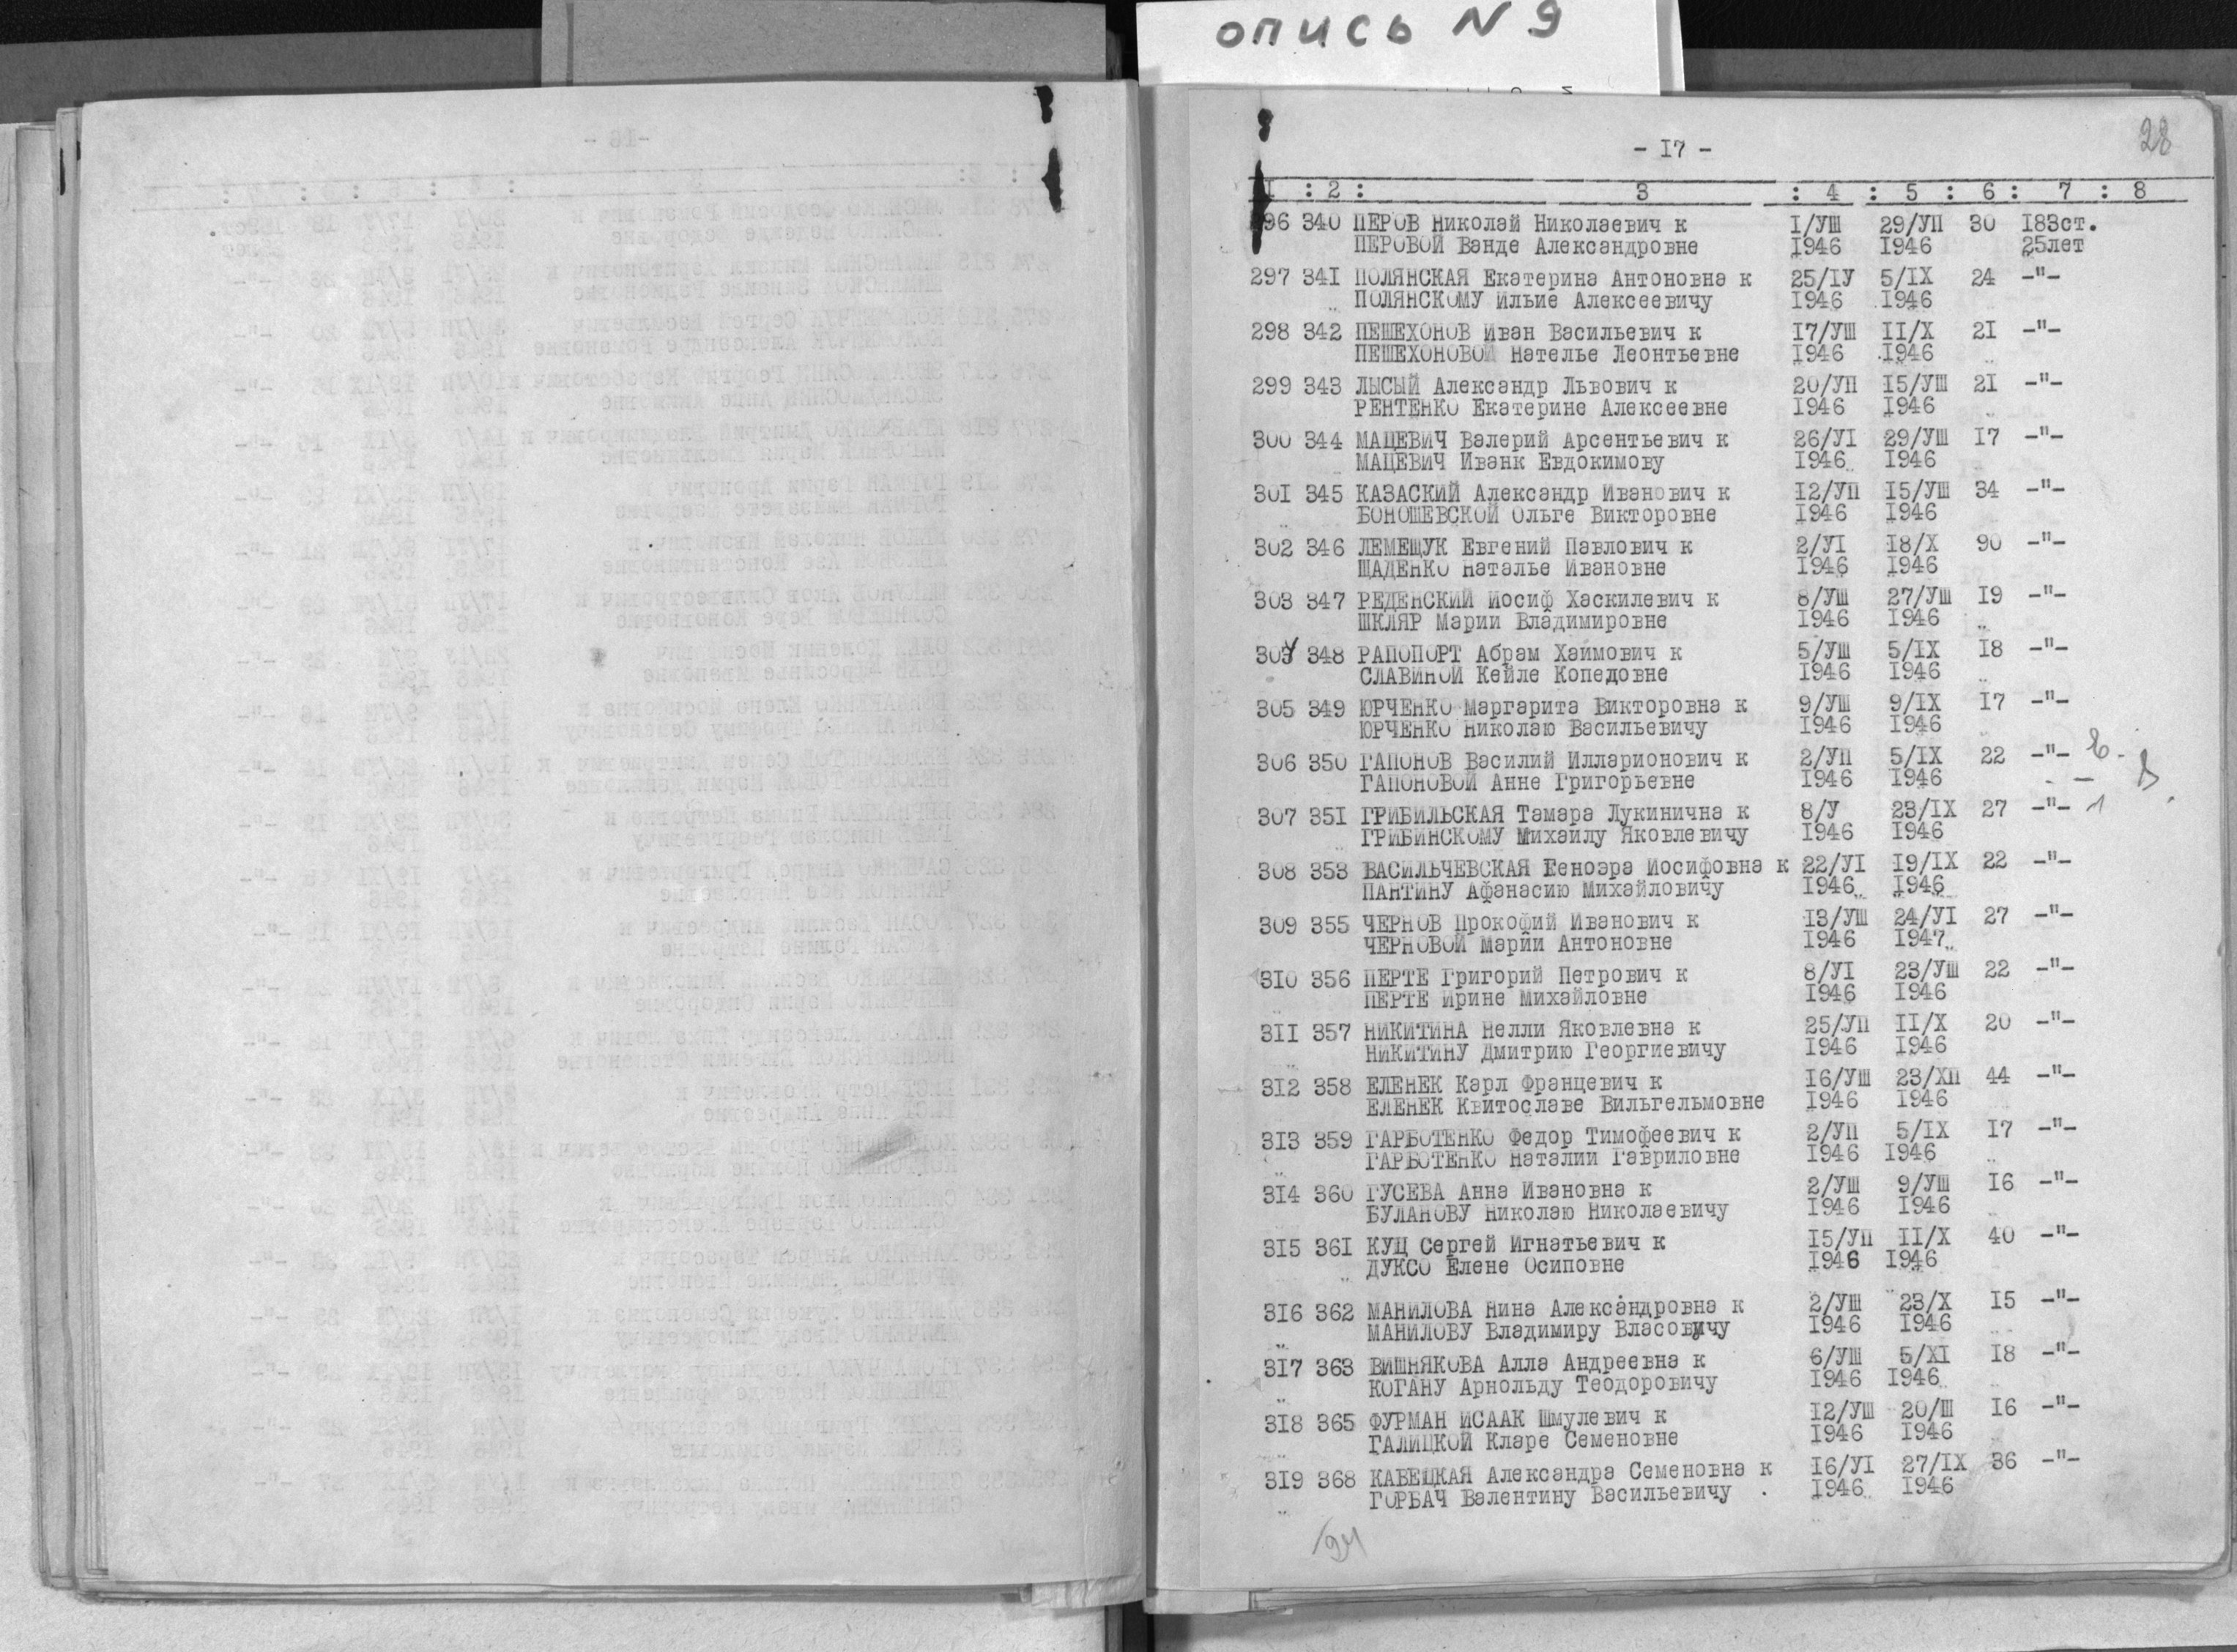 опись N 9
28
- I7 -
I : 2 : 3 : 4 : 5 : 6 : 7 : 8
96 340 ПЕРОВ Николай Николаевич к I/УШ 29/УП 30 I83ст.
ПЕРОВОЙ Ванде Александровне I946 I946 25лет
297 34I ПОЛЯНСКАЯ Екатерина Антоновна к 25/IУ 5/IX 24 -"-
ПОЛЯНСКОМУ Ильие Алексеевичу I946 I946
298 342 ПЕШЕХОНОВ Иван Васильевич к I7/УШ II/X 2I -"-
ПЕШЕХОНОВОЙ Нателье Леонтьевне I946 I946
299 343 ЛЫСЫЙ Александр Львович к 20/УП I5/УШ 2I -"-
РЕНТЕНКО Екатерине Алексеевне I946 I946
300 344 МАЦЕВИЧ Валерий Арсентьевич к 26/УI 29/УШ I7 -"-
МАЦЕВИЧ Иванк Евдокимову I946 I946
30I 345 КАЗАСКИЙ Александр Иванович к I2/УП I5/УШ 34 -"-
БОНОШЕВСКОЙ Ольге Викторовне I946 I946
302 346 ЛЕМЕЩУК Евгений Павлович к 2/УI I8/X 90 -"-
ЩАДЕНКО Наталье Ивановне I946 I946
303 347 РЕДЕНСКИЙ Иосиф Хаскилевич к 8/УШ 27/УШ I9 -"-
ШКЛЯР Марии Владимировне I946 I946
304 348 РАПОПОРТ Абрам Хаимович к 5/УШ 5/IX I8 -"-
СЛАВИНОЙ Кейле Копедовне I946 I946
305 349 ЮРЧЕНКО Маргарита Викторовна к 9/УШ 9/IX I7 -"-
ЮРЧЕНКО Николаю Васильевичу I946 I946
306 350 ГАПОНОВ Василий Илларионович к 2/УП 5/IX 22 -"-
ГАПОНОВОЙ Анне Григорьевне I946 I946
307 35I ГРИБИЛЬСКАЯ Тамара Лукинична к 8/У 23/IX 27 -"- 1
ГРИБИНСКОМУ Михаилу Яковлевичу I946 I946
308 353 ВАСИЛЬЧЕВСКАЯ Еенозра Иосифовна к 22/УI I9/IX 22 -"-
ПАНТИНУ Афанасию Михайловичу I946 I946
309 355 ЧЕРНОВ Прокофий Иванович к I3/УШ 24/УI 27 -"-
ЧЕРНОВОЙ Марии Антоновне I946 I947
3I0 356 ПЕРТЕ Григорий Петрович к 8/УI 23/УШ 22 -"-
ПЕРТЕ Ирине Михайловне I946 I946
3II 357 НИКИТИНА Нелли Яковлевна к 25/УП II/X 20 -"-
НИКИТИНУ Дмитрию Георгиевичу I946 I946
3I2 358 ЕЛЕНЕК Карл Францевич к I6/УШ 23/ХП 44 -"-
ЕЛЕНЕК Квитославе Вильгельмовне I946 I946
3I3 359 ГАРБОТЕНКО Федор Тимофеевич к 2/УП 5/IX I7 -"-
ГАРБОТЕНКО Наталии Гавриловне I946 I946
3I4 360 ГУСЕВА Анна Ивановна к 2/УШ 9/УШ I6 -"-
БУЛАНОВУ Николаю Николаевичу I946 I946
3I5 36I КУЦ Сергей Игнатьевич к I5/УП II/X 40 -"-
ДУКСО Елене Осиповне I946 I946
3I6 362 МАНИЛОВА Нина Александровна к 2/УШ 23/X I5 -"-
МАНИЛОВУ Владимиру Власовичу I946 I946
3I7 363 ВИШНЯКОВА Алла Андреевна к 6/УШ 5/XI I8 -"-
КОГАНУ Арнольду Теодоровичу I946 I946
3I8 365 ФУРМАН ИСААК Шмулевич к I2/УШ 20/Ш I6 -"-
ГАЛИЦКОЙ Кларе Семеновне I946 I946
3I9 368 КАБЕЦКАЯ Александра Семеновна к I6/УI 27/IX 36 -"-
ГОРБАЧ Валентину Васильевичу I946 I946